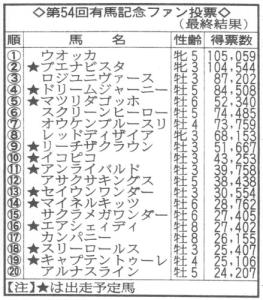 ◇第54回有馬記念ファン投票◇
(最終結果)
順 馬名 性齢 得票数
① ウオッカ 牝5 105,059
② ★ブエナビスタ 牝3 104,544
③ ロジユニヴァース 牡3 87,202
④ ★ドリームジャーニー 牡5 84,508
⑤ ★マツリダゴッホ 牡6
⑥ スクリーンヒーロー 牡5 74,485
⑦ オウケンブルースリ 牡4 73,759
⑧ レッドディザイア 牝3 68,153
⑨ ★リーチザクラウン 牡3 51,667
⑩ ★イコピコ 牡3 43,253
⑪ ★アンライバルド 牡3 39,758
⑫ アサクサキングス 牡5 38,438
⑬ ★セイウンワンダー 牡3 30,554
⑭ ★マイネルキッツ 牡6 28,762
⑮ サクラメガワンダー 牡6 27,405
⑯ ★エアシェイディ 牡8 27,402
⑰ カンパニー 牡8 26,155
⑱ ★スリーロールス 牡3 25,407
⑲ ★キャプテントゥーレ 牡4 25,106
⑳ アルナスライン 牡5 24,207
【注】★は出走予定馬